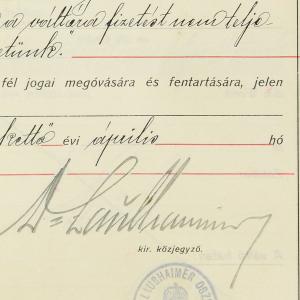 a váltóra fizetést nem telje-
etünk."
fél jogai megóvására és fentartására, jelen
kettő évi április hó
kir. közjegyző.